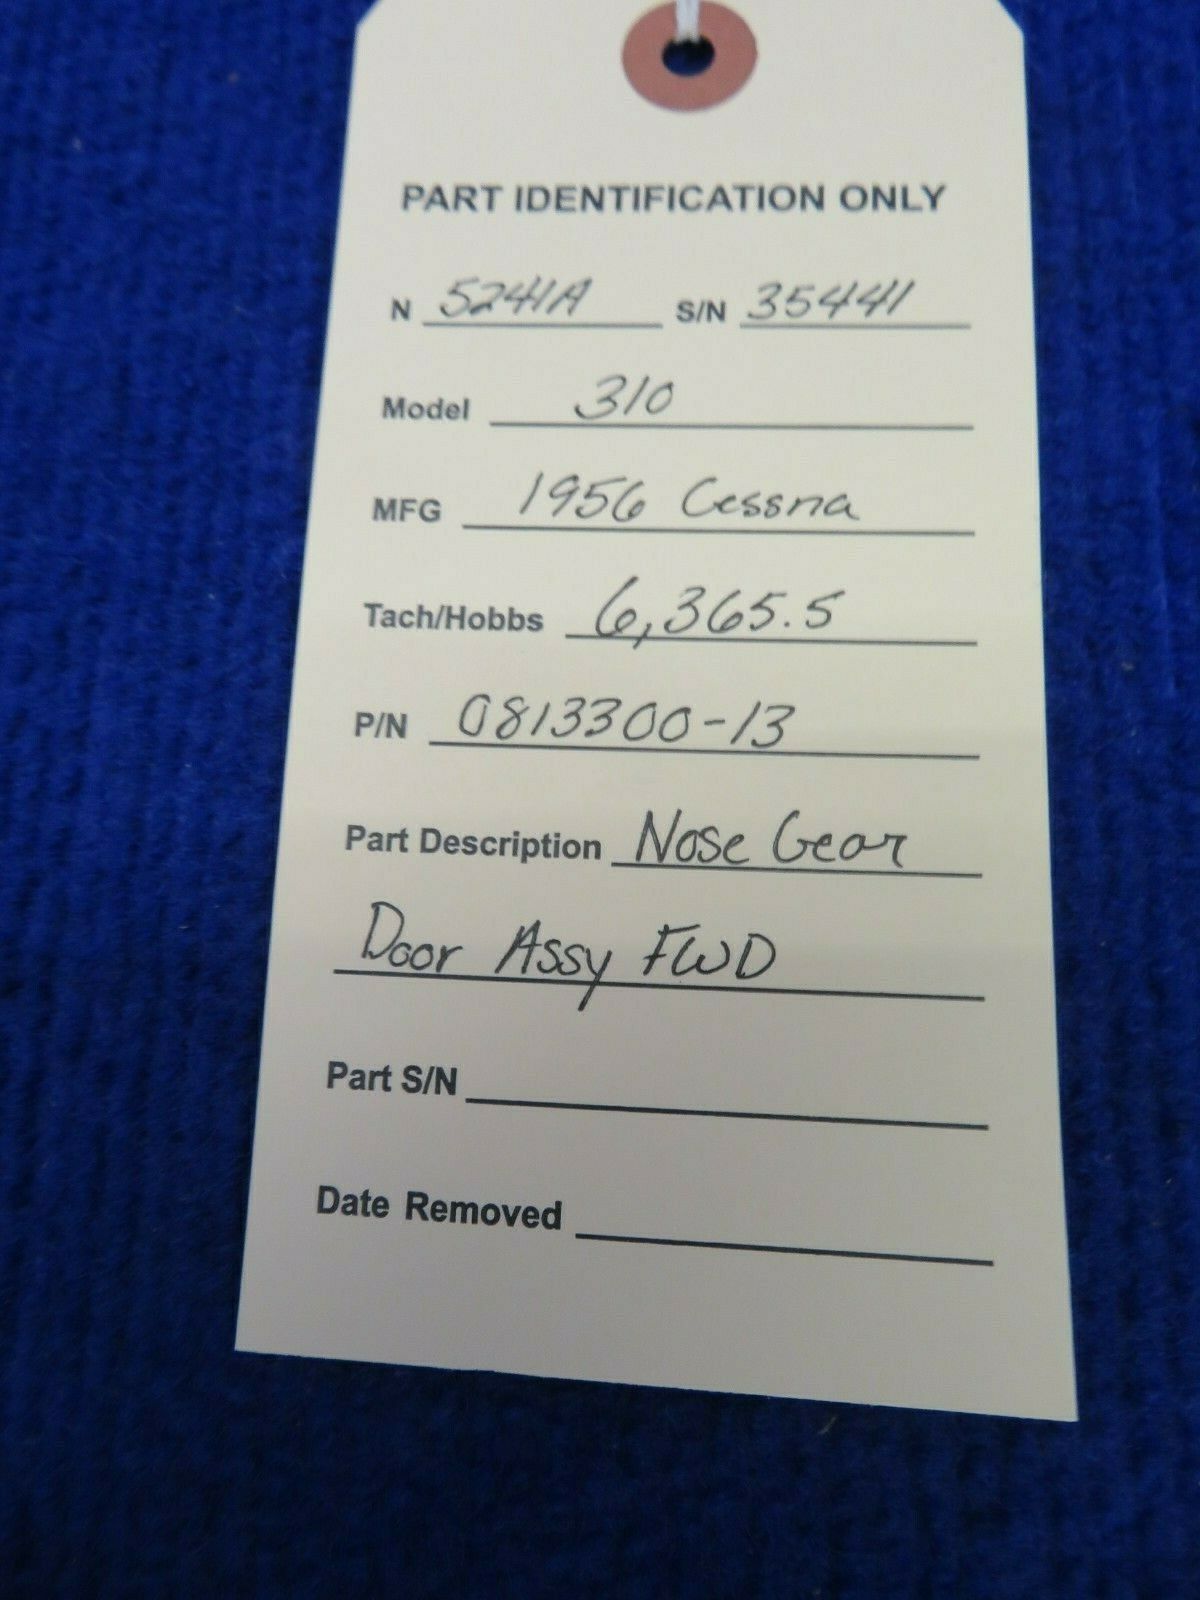 PART IDENTIFICATION ONLY
N 5241A S/N 35441
Model 310
MFG 1956 Cessna
Tach/Hobbs 6,365.5
P/N 0813300-13
Part Description Nose Gear
Door Assy FWD
Part S/N
Date Removed